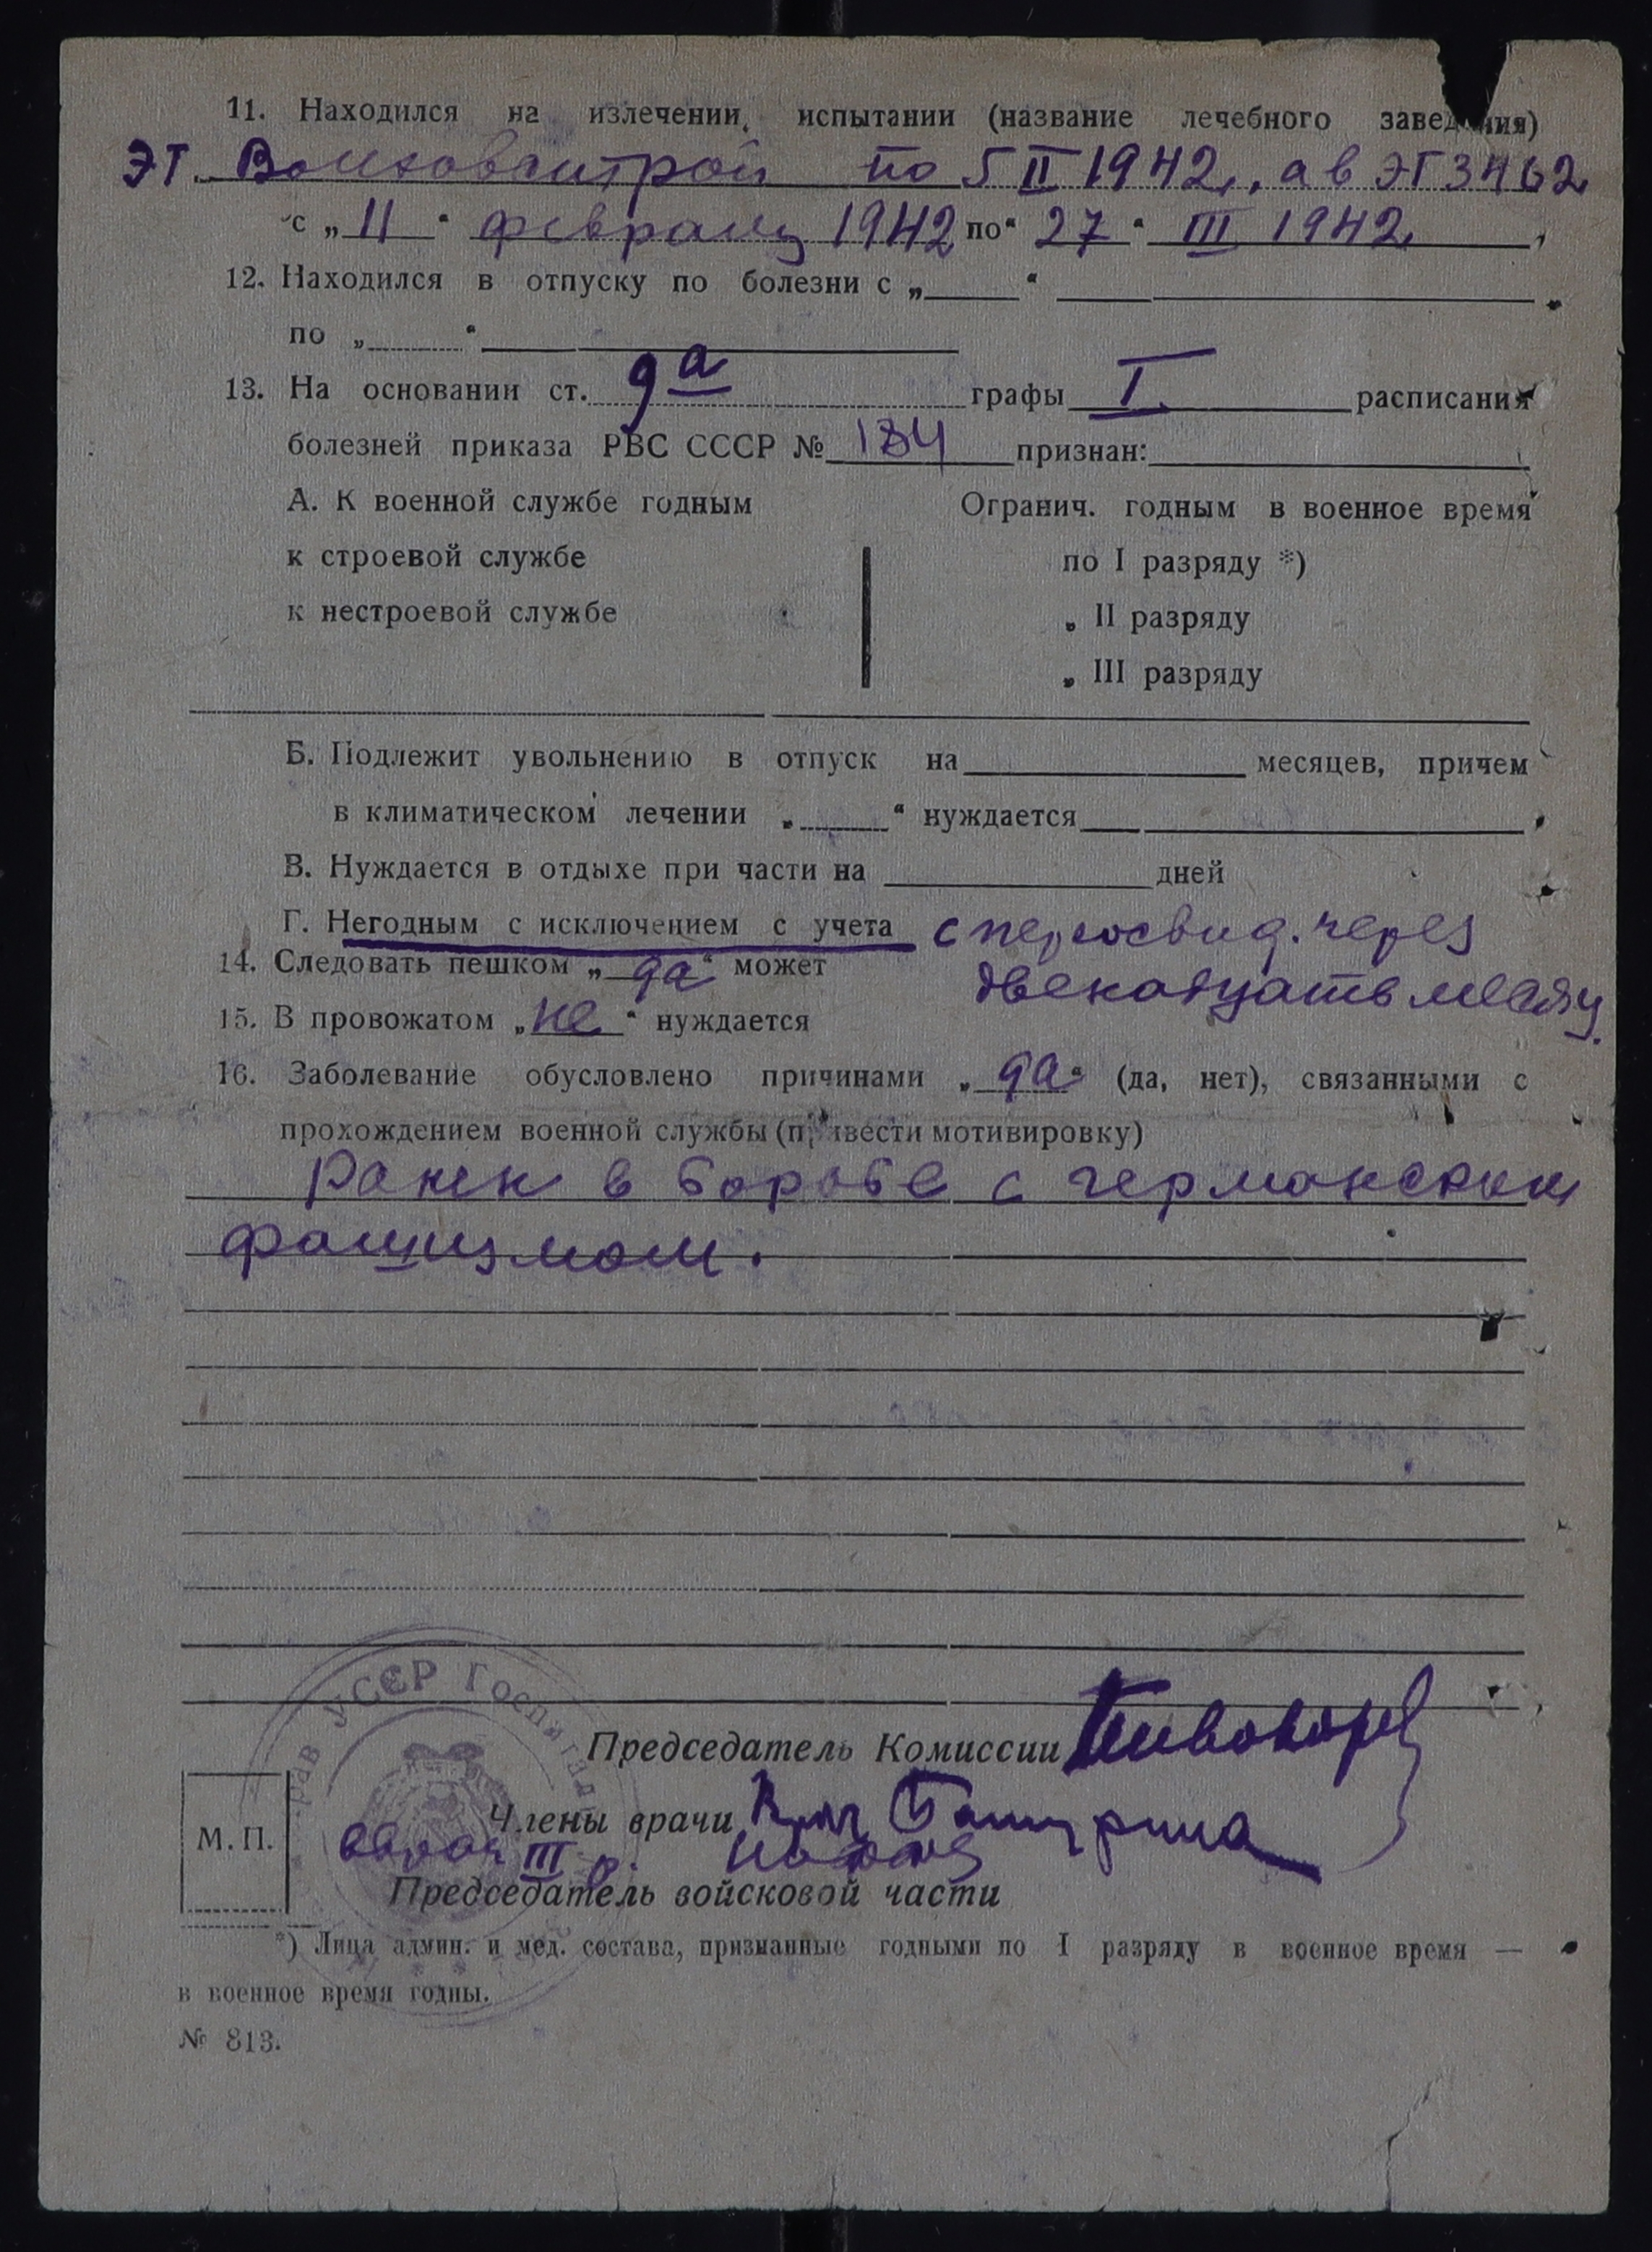 11. Находился на излечении, испытании (название лечебного заведения)
ЭГ. Волховстрой по 5 II 1942, а в ЭГ 3462
с „11“ февраля 1942 по „27“ III 1942,
12. Находился в отпуску по болезни с „ “
по „ “
13. На основании ст. 9а графы I расписания
болезней приказа РВС СССР № 184 признан:
А. К военной службе годным Огранич. годным в военное время
к строевой службе по I разряду *)
к нестроевой службе „ II разряду
„ III разряду
Б. Подлежит увольнению в отпуск на месяцев, причем
в климатическом лечении „ “ нуждается
В. Нуждается в отдыхе при части на дней
Г. Негодным с исключением с учета с переосвид. через
14. Следовать пешком „да“ может двенадцать месяц.
15. В провожатом „не“ нуждается
16. Заболевание обусловлено причинами „да“ (да, нет), связанными с
прохождением военной службы (привести мотивировку)
Ранен в борьбе с германским
фашизмом.
УССР Госпиталь
Председатель Комиссии
Члены врачи
М. П.
III
Председатель войсковой части
*) Лица админ. и мед. состава, признанные годными по I разряду в военное время —
в военное время годны.
№ 813.